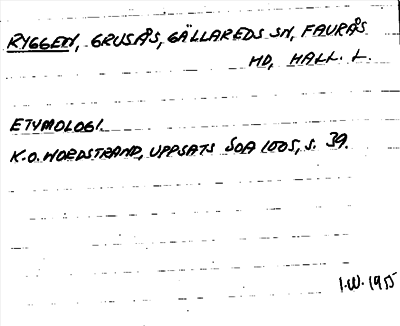 RYGGEN, GRUSÅS, GÄLLAREDS SN, FAURÅS
HD, HALL. L.
ETYMOLOGI.
K.O. NORDSTRAND, UPPSATS SOA 1005, S. 39.
I.W. 1955